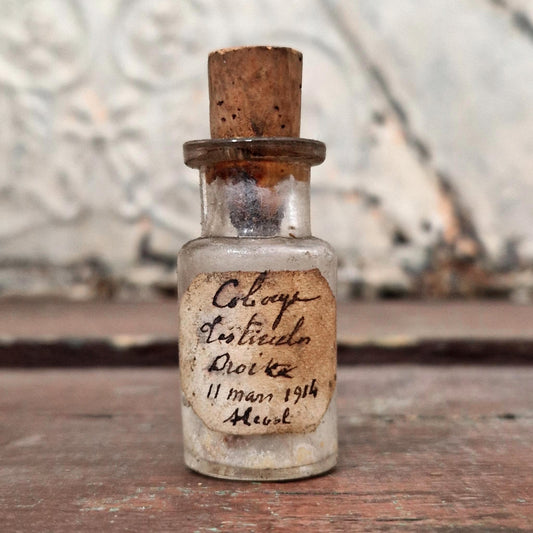 Cobaye
Testicules
Droite
11 mars 1914
Alcool